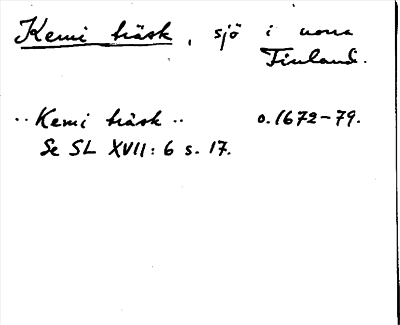 Kemi träsk, sjö i norra
Finland.
"Kemi träsk" o. 1672-79.
Se SL XVII: 6 s. 17.